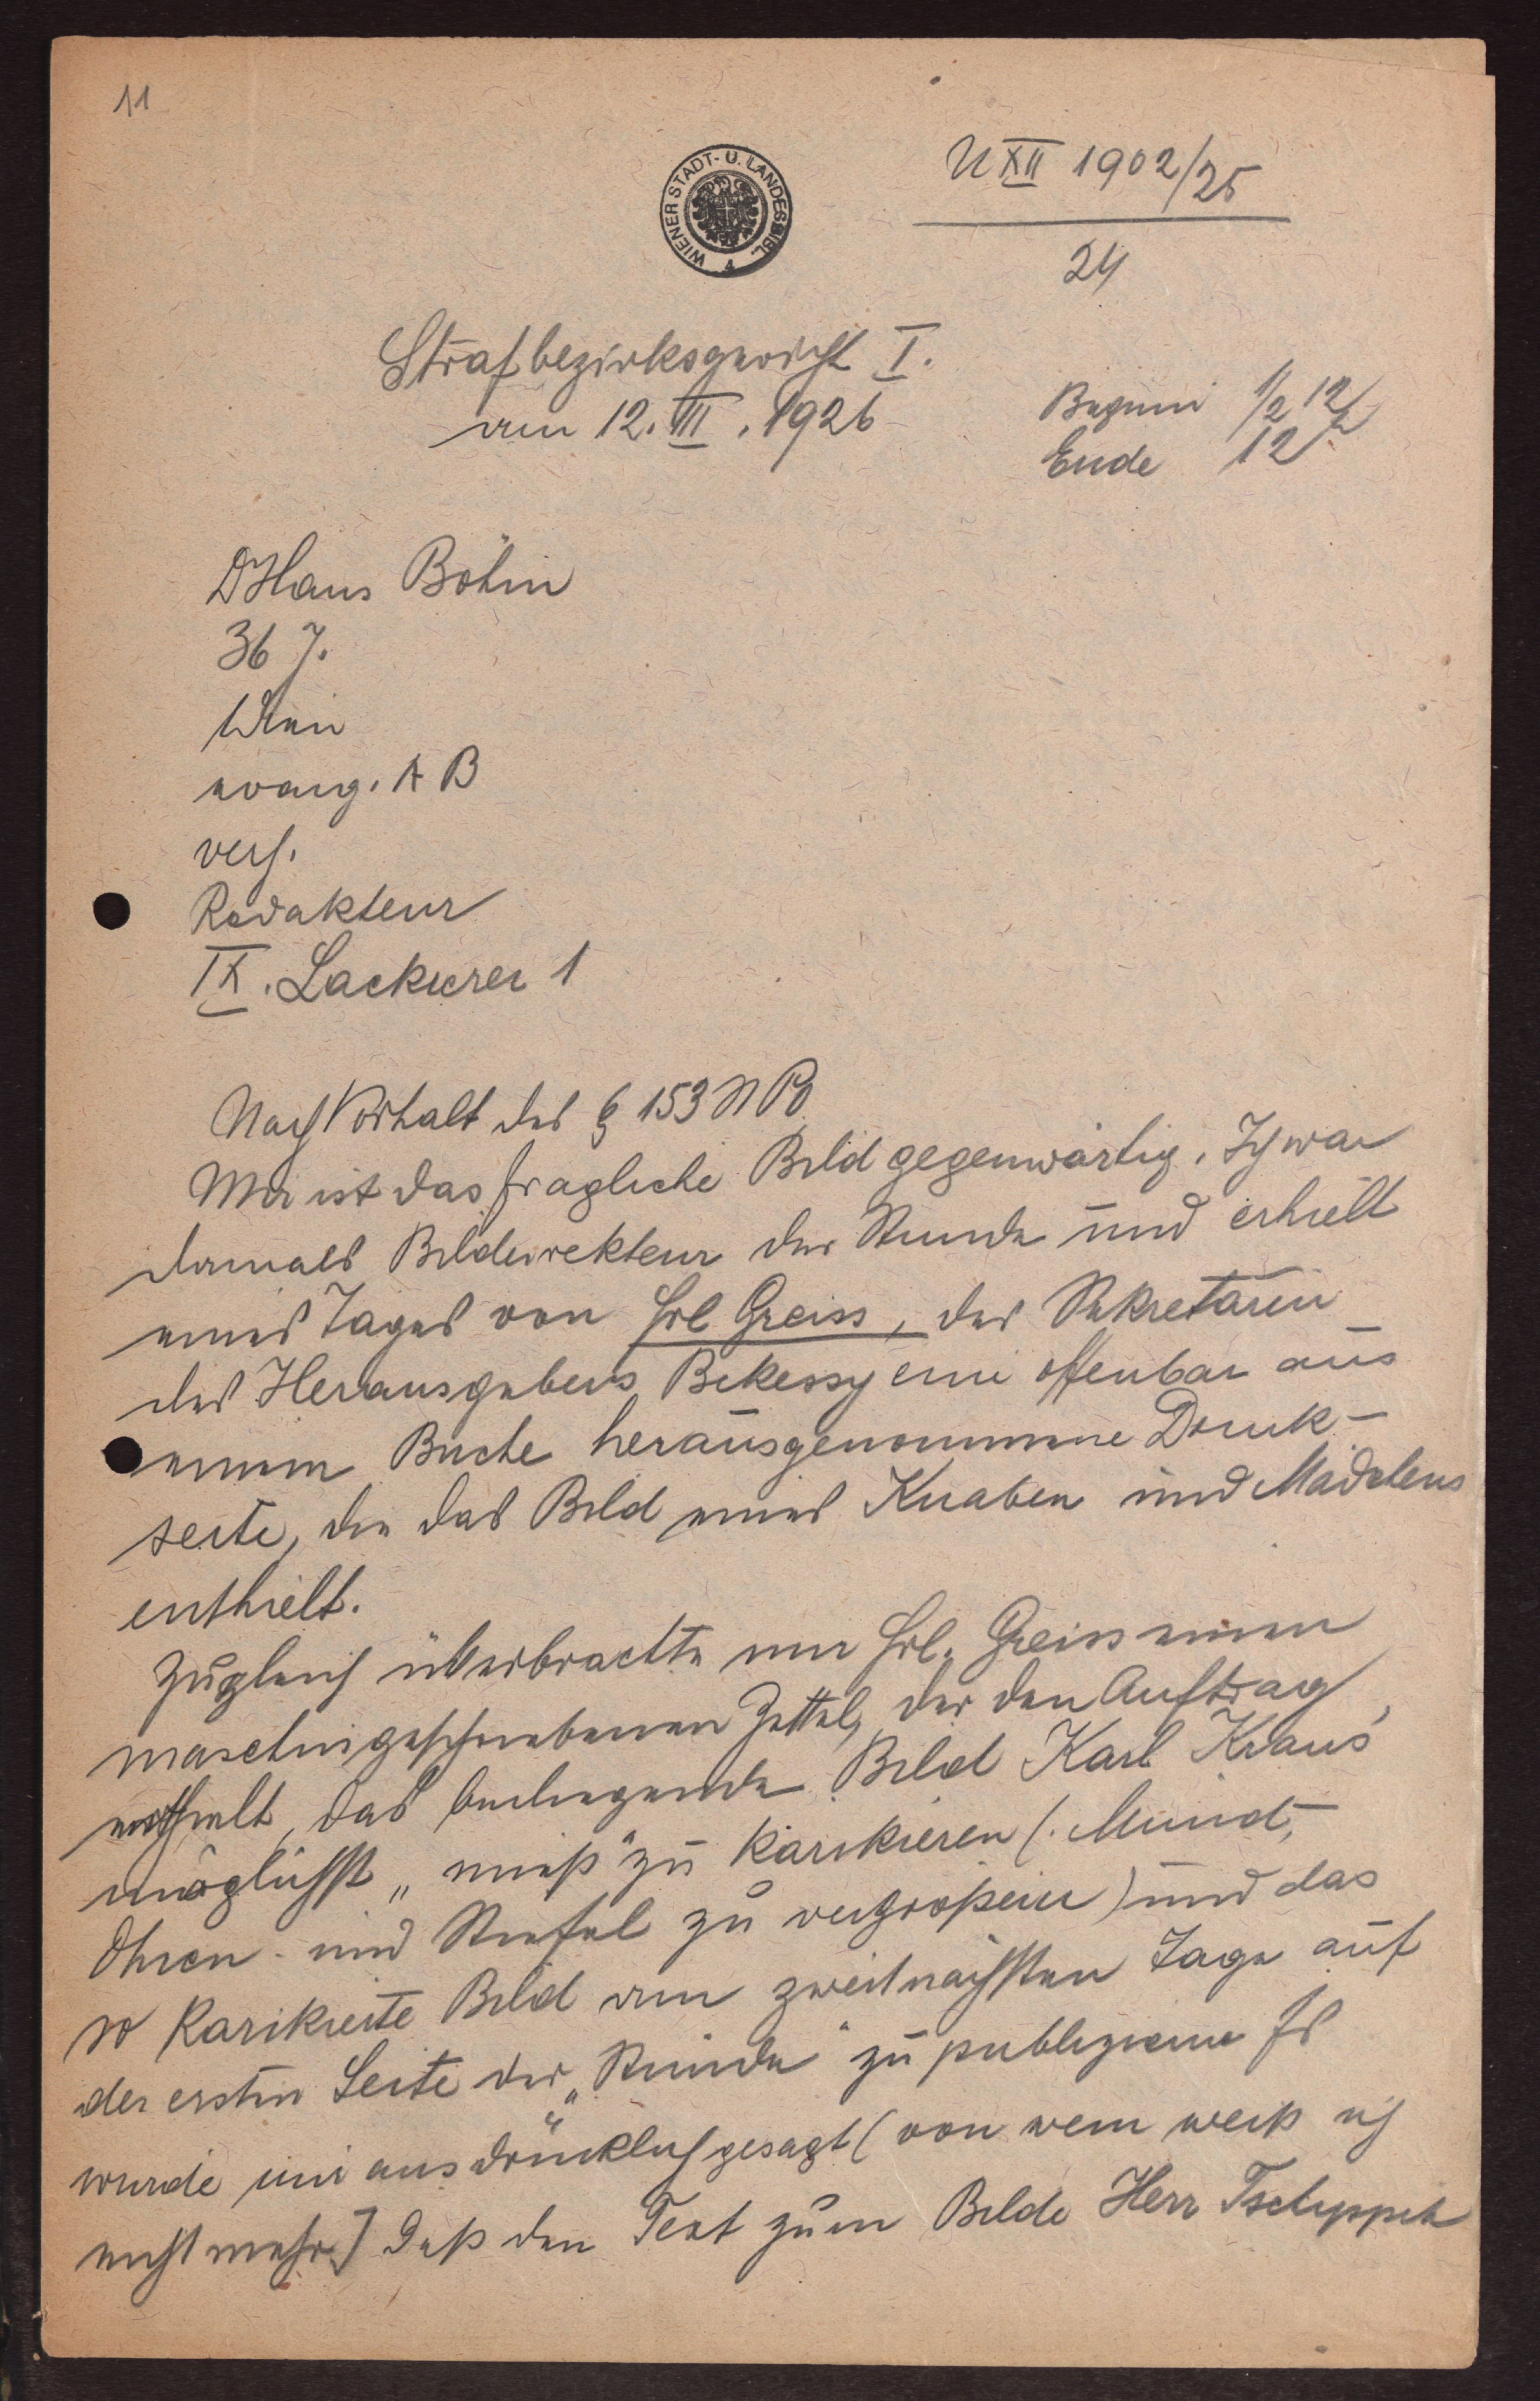 11
WIENER STADT- U. LANDESBIBL.
U XII 1902/25
24
Strafbezirksgericht I.
am 12. VII. 1926
Beginn 1/2 12 h
Ende 12
D Hans Böhm
36 J.
Wien
evang. A B
verh.
Redakteur
IX. Lackierer 1
Nach Vorhalt des § 153 St Po
Mir ist das fragliche Bild gegenwärtig. Ich war
damals Bilddirekteur der Stunde und erhielt
eines Tages von Frl Greiss, der Sekretärin
des Herausgebers Bekessy eine offenbar aus
einem Buche herausgenommene Druck-
seite, die das Bild eines Knaben und Mädchens
enthielt.
Zugleich überbrachte mir Frl. Greiss einen
maschingeschriebenen Zettel, der den Auftrag
enthielt, das beiliegende Bild Karl Kraus'
möglichst „mieß" zu karikieren (. Mund,
Ohren- und Stiefel zu vergrößern) und das
so karikierte Bild am zweitnächsten Tage auf
der ersten Seite der „Stunde" zu publizieren Es
wurde mir ausdrücklich gesagt (von wem weiß ich
nicht mehr) daß den Text zum Bilde Herr Tschuppik